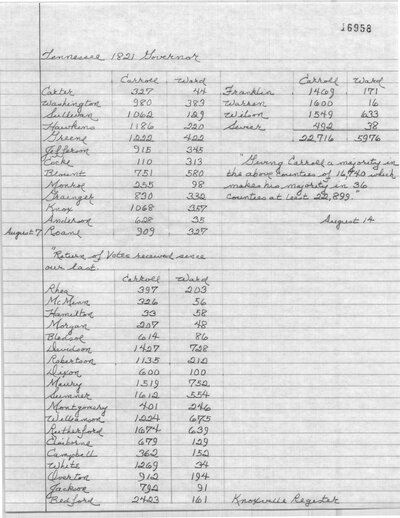 16958
Tennessee 1821 Governor
Carroll Ward
Carter 327 44
Washington 980 383
Sullivan 1062 129
Hawkins 1186 220
Greene 1222 422
Jefferson 915 345
Cocke 110 313
Blount 751 580
Monroe 255 98
Grainger 830 332
Knox 1068 357
Anderson 628 35
August 7 Roane 909 327
Carroll Ward
Franklin 1469 171
Warren 1600 16
Wilson 1549 633
Sevier 492 38
22,716 5976
"Giving Carroll a majority in
the above counties of 16,740 which
makes his majority in 36
counties at least 22,899."
August 14
"Return of Votes received since
our last.
Carroll Ward
Rhea 397 203
McMinn 326 56
Hamilton 33 58
Morgan 207 48
Bledsoe 614 86
Davidson 1427 728
Robertson 1135 212
Dixon 600 100
Maury 1519 752
Sumner 1612 554
Montgomery 401 246
Williamson 1224 675
Rutherford 1674 639
Claiborne 679 129
Campbell 362 152
White 1269 34
Overton 912 194
Jackson 792 91
Bedford 2423 161
Knoxville Register